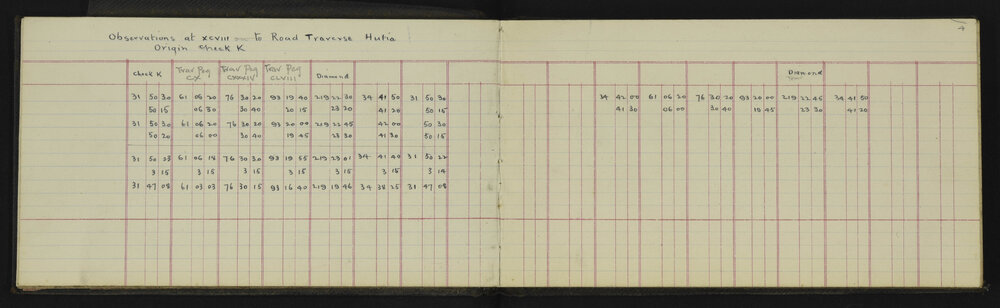 4
Observations at XCVIII to Road Traverse Hutia
Origin Check K
Check K Trav Peg CX Trav Peg CXXXIV Trav Peg CLVIII Diamond Diamond
31 50 30 61 06 20 76 30 20 93 19 40 219 22 30 34 41 50 31 50 30 34 42 00 61 06 20 76 30 20 93 20 00 219 22 45 34 41 50
50 15 06 30 30 40 20 15 23 20 41 20 50 15 41 30 06 00 30 40 19 45 23 30 41 20
31 50 30 61 06 20 76 30 20 93 20 00 219 22 45 42 00 50 30
50 20 06 00 30 40 19 45 23 30 41 30 50 15
31 50 23 61 06 18 76 30 30 93 19 55 219 23 01 34 41 40 31 50 22
3 15 3 15 3 15 3 15 3 15 3 15 3 14
31 47 08 61 03 03 76 30 15 93 16 40 219 19 46 34 38 25 31 47 08